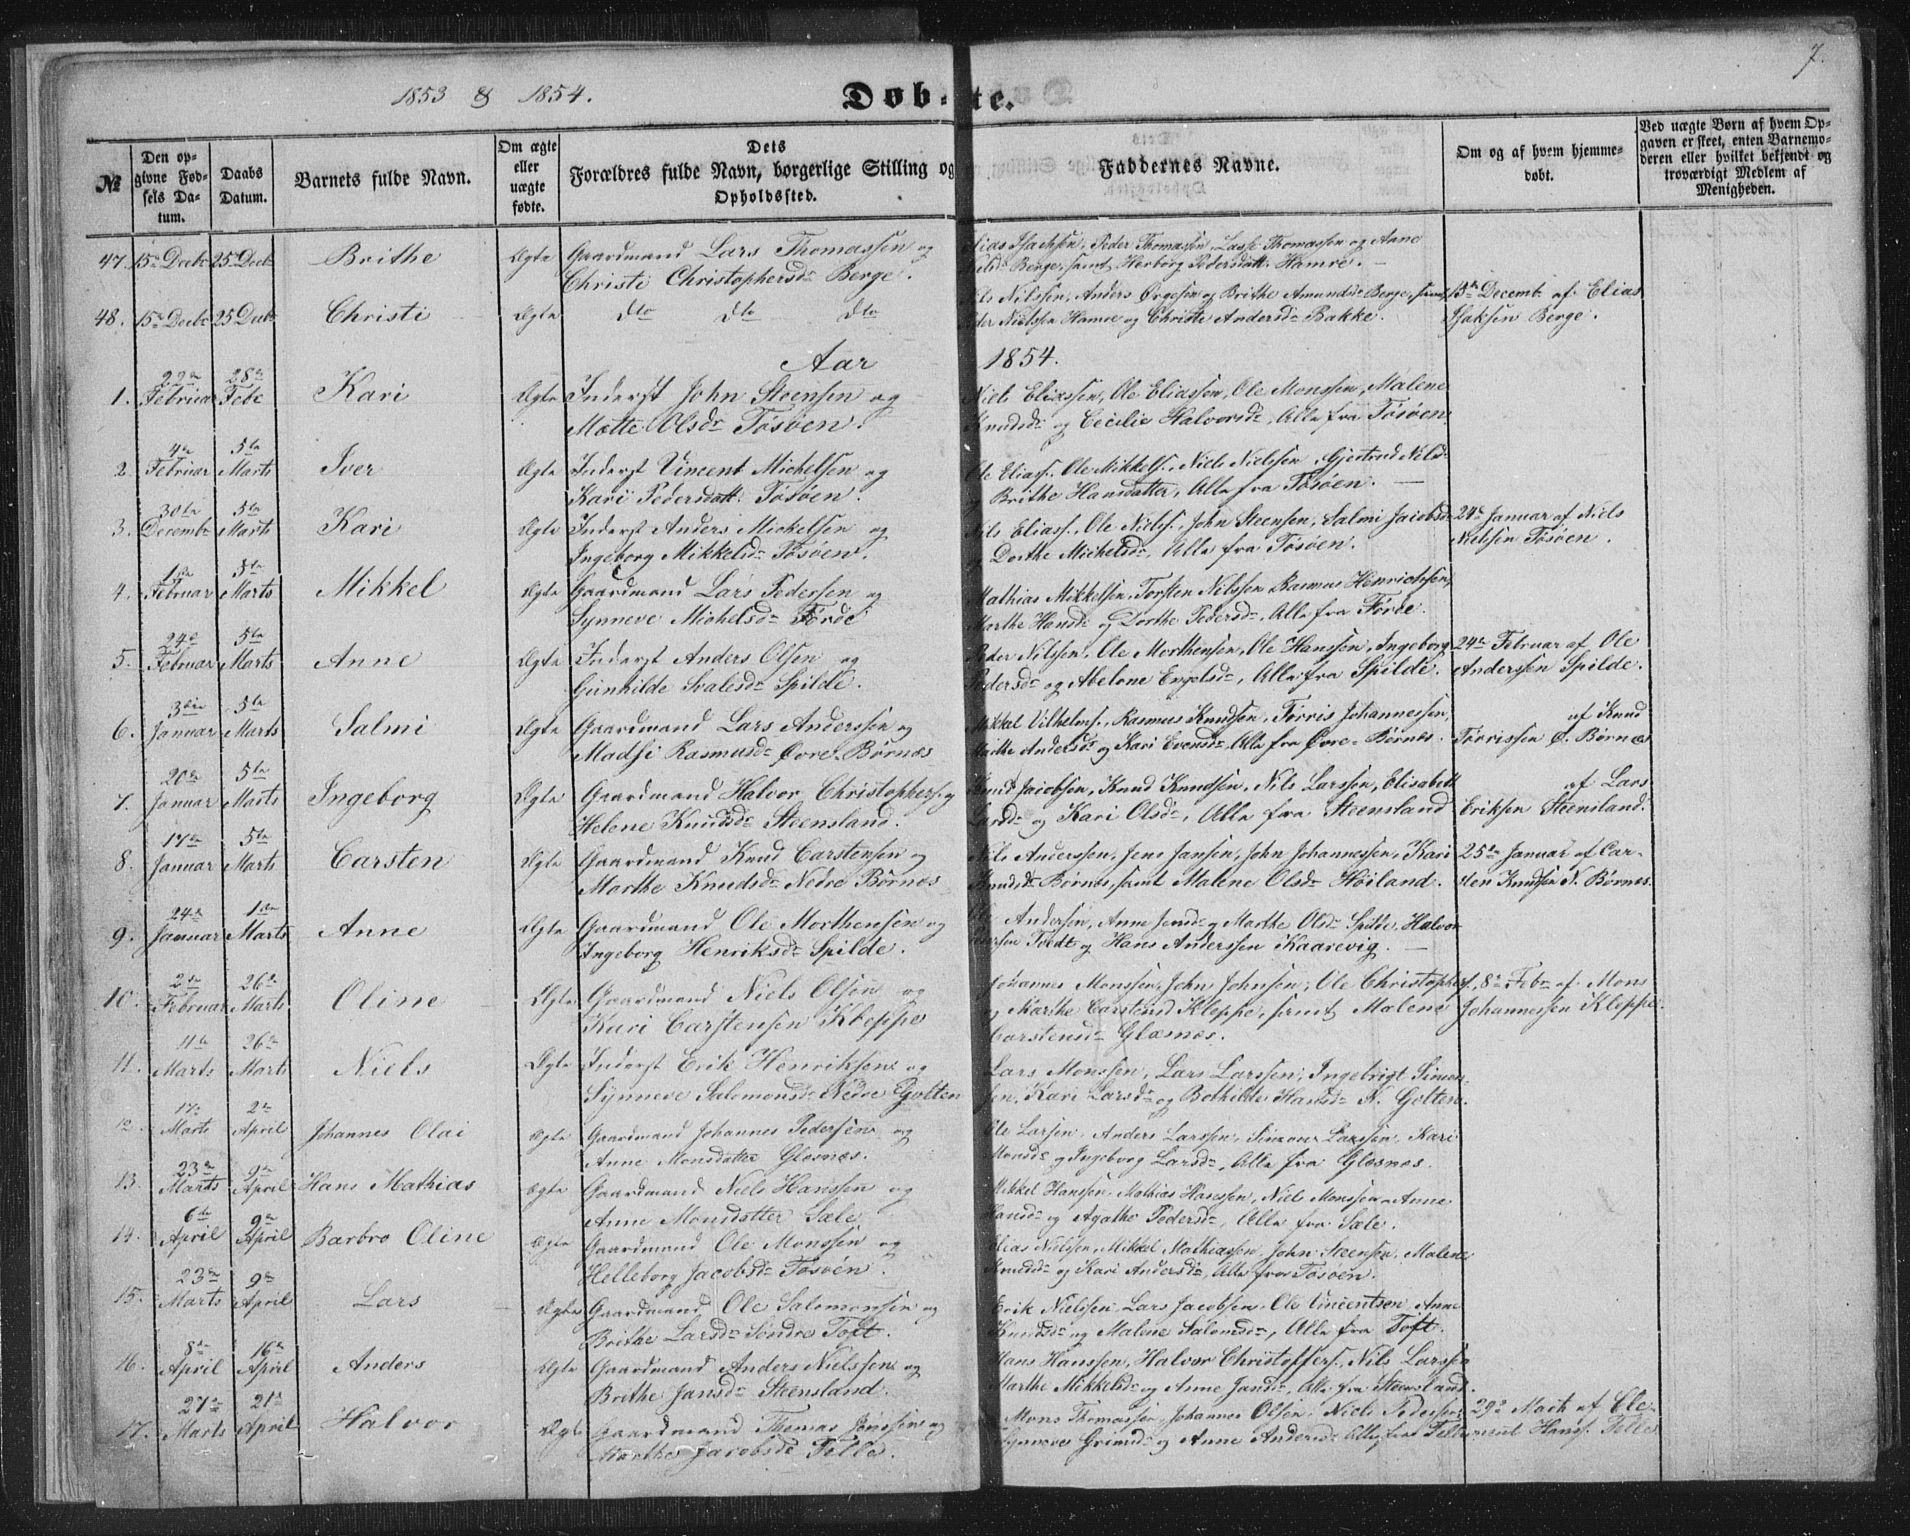 7.
1853 & 1854.
Døbte.
№
Den opgivne Fødsels Datum.
Daabs Datum.
Barnets fulde Navn.
Om ægte eller uægte fødte.
Dets Forældres fulde Navn, borgerlige Stilling og Opholdssted.
Faddernes Navne.
Om og af hvem hjemmedøbt.
Ved uægte Børn af hvem Opgaven er skeet, enten Barnemoderen eller hvilket bekjendt og troværdigt Medlem af Menigheden.
47. 15de Decbr 25 Decbr Brithe Ægte Gaardmand Lars Thomassen og
Christi Christophersdr Berge.
Elias Isachsen, Peder Thomassen, Lasse Thomassen og Anne
Berge, samt Herborg Pedersdatt. Hamre.
48. 15de Decbr 25 Decbr Christi Ægte dto dto dto
Nils Nilssen, Anders Ørgesen og Brithe Amundsdr Berge, samt
Peder Nielssen Hamre og Christi Andersdr Bakke.
15de Decemb af Elias
Isaksen Berge.
Aar 1854.
1. 22de Februar 28de Febr Kari Ægte Inderst John Steensen og
Mætte Olsdr Tøsøen.
Niels Eliassen, Ole Eliassen, Ole Monssen, Malene
Knudsdr og Cecilie Halvorsdr, Alle fra Tøsøen.
2. 4de Februar 5te Marts Iver Ægte Inderst Vincent Michelsen og
Kari Pedersdatt. Tøsøen.
Ole Eliass., Ole Mikkels., Niels Nielssen, Gjertrud Nilsdr
og Brithe Hansdatter, Alle fra Tøsøen.
3. 30te Decembr 5te Marts Kari Ægte Inderst Anders Mickelsen og
Ingeborg Mikkelsdr Tøsøen.
Nils Eliass., Ole Niels., John Steensen, Salmi Jacobsdr
og Dorthe Michelsdr, Alle fra Tøsøen.
24de Januar af Niels
Nielsen Tøsøen.
4. 1ste Februar 5te Marts Mikkel Ægte Gaardmand Lars Pedersen og
Synneve Michelsdr Førde
Mathias Mikkelsen, Torsten Nilssen, Rasmus Henrichsen,
Marthe Hansdr og Dorthe Pedersdr, Alle fra Førde.
5. 24de Februar 5te Marts Anne Ægte Inderst Anders Olsen og
Gunhilde Ivalesdr Spilde.
Peder Nilssen, Ole Morthensen, Ole Hanssen, Ingeborg
Pedersdr og Abelone Engelsdr, Alle fra Spilde.
24de Februar af Ole
Anderssen Spilde.
6. 3die Januar 5te Marts Salmi Ægte Gaardmand Lars Anderssen og
Madsi Rasmusdr Øvre-Børnæs
Mikkel Vilhelms., Rasmus Knudsen, Tørris Johannessen,
Marthe Andersdr og Kari Evensdr, Alle fra Øvre-Børnæs.
af Knud
Tørrissen Ø. Børnæs
7. 20de Januar 5te Marts Ingeborg Ægte Gaardmand Halvor Christophers. og
Helene Knudsdr Steensland.
Knud Jacobsen, Knud Knudsen, Nils Larssen, Elisabeth
Larsdr og Kari Olsdr, Alle fra Steensland
af Lars
Eriksen Steensland.
8. 17de Januar 5te Marts Carsten Ægte Gaardmand Knud Carstensen og
Marthe Knudsdr Nedre Børnæs
Nils Anderssen, Jens Jansen, John Johannessen, Kari
Knudsdr Børnæs, samt Malene Olsdr Høiland.
25de Januar af Carsten
Knudsen N. Børnæs.
9. 24de Januar 1ste Marts Anne Ægte Gaardmand Ole Morthensen og
Ingeborg Henriksdr Spilde.
Andersen, Anne Jensdr og Marthe Olsdr Spilde, Halvor
Tvedt og Hans Anderssen Kaarevig.
10. 2den Februar 26de Marts Oline Ægte Gaardmand Niels Olsen og
Kari Carstensen Kleppe
Johannes Monssen, John Johnsen, Ole Christophers.
og Marthe Carstensd Kleppe, samt Malene
Carstensdr Glæsnes.
8de Febr af Mons
Johannessen Kleppe.
11. 11te Marts 26de Marts Niels Ægte Inderst Erik Henriksen og
Synneve Salomonsdr Nedre Golten
Lars Monssen, Lars Larssen, Ingebrigt Simonsen,
Kari Larsdr og Bothilde Hansdr N. Golten.
12. 17de Marts 2den April Johannes Olai Ægte Gaardmand Johannes Pedersen og
Anne Monsdatte Glesnes.
Ole Larsen, Anders Larssen, Simon Larssen, Kari
Monsdr og Ingeborg Larsdr, Alle fra Glæsnes.
13. 23de Marts 9de April Hans Mathias Ægte Gaardmand Niels Hanssen og
Anne Monsdatter Sæle
Mikkel Hanssen, Mathias Hanssen, Niels Monssen, Anne
Hansdr og Agathe Pedersdr, Alle fra Sæle.
14. 6te April 9de April Barbro Oline Ægte Gaardmand Ole Monssen og
Helleborg Jacobsdr Tøsøen.
Elias Nielsen, Mikkel Mathiassen, John Steensen, Malene
Knudsdr og Kari Andersdr, Alle fra Tøsøen.
15. 23de Marts 9de April Lars Ægte Gaardmand Ole Salomonsen og
Brithe Larsdr Søndre Toft.
Erik Nielsen, Lars Jacobsen, Ole Vincentsen, Anne
Knudsdr og Malene Salomsdr, Alle fra Toft.
16. 8de April 16de April Anders Ægte Gaardmand Anders Nielssen og
Brithe Jansdr Steensland.
Hans Hanssen, Halvor Christoffers., Nils Larssen
Marthe Mikkelsdr og Anne Jansdr, Alle fra Steensland.
17. 27de Marts 21de April Halvor Ægte Gaardmand Thomas Jonssen og
Marthe Jacobsdr Telle.
Mons Thomassen, Johannes Olsen, Niels Pedersen,
Synneve og Anne Andersdr Alle fra Telle
29de Marts af Clement
Hans. Telle